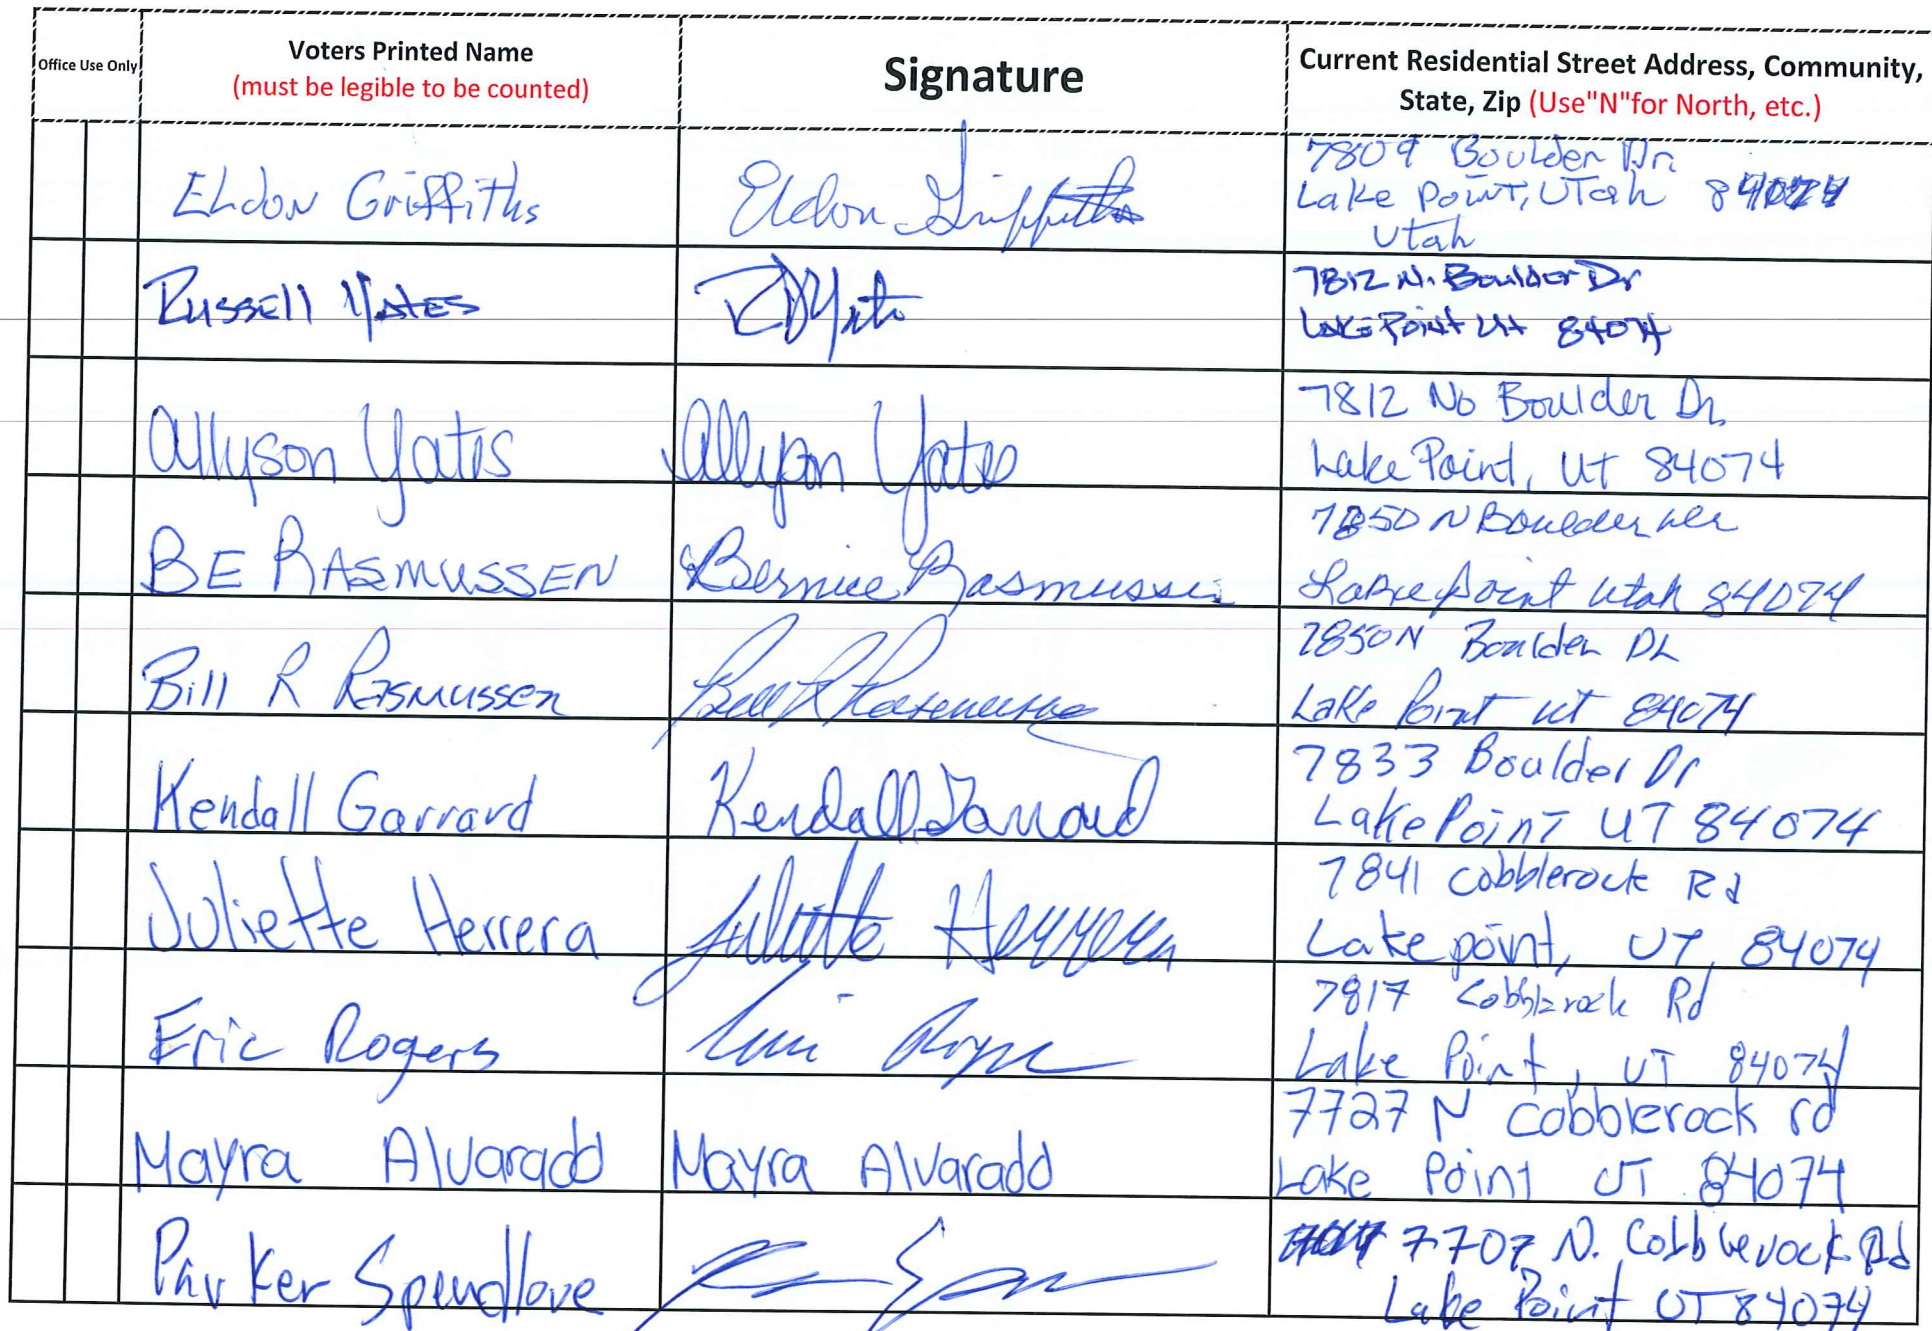 Office Use Only
Voters Printed Name
(must be legible to be counted)
Signature
Current Residential Street Address, Community,
State, Zip (Use"N"for North, etc.)
Eldon Griffiths
Eldon Griffiths
7809 Boulder Dr
Lake Point, Utah 84074
Utah
Russell Yates
RDYates
7812 N. Boulder Dr
Lake Point Ut 84074
Allyson Yates
Allyson Yates
7812 No Boulder Dr.
Lake Point, UT 84074
BE RASMUSSEN
Bernice Rasmussen
7850 N Boulder
Lake Point Utah 84074
Bill R Rasmussen
Bill R Rasmussen
7850 N Boulder Dr
Lake Point ut 84074
Kendall Garrard
Kendall Garrard
7833 Boulder Dr
Lake Point UT 84074
Juliette Herrera
Juliette Herrera
7841 cobblerock Rd
Lake point, UT, 84074
Eric Rogers
Eric Rogers
7817 Cobblerock Rd
Lake Point, UT 84074
Mayra Alvarado
Mayra Alvarado
7727 N Cobblerock rd
Lake Point UT 84074
Parker Spendlove
7707 N. Cobblerock Rd
Lake Point UT 84074